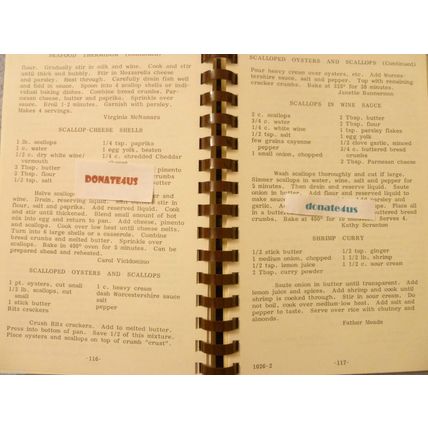 SEAFOOD THERMIDOR (Continued)
flour. Gradually stir in milk and wine. Cook and stir
until thick and bubbly. Stir in Mozzarella cheese
and parsley. Heat through. Carefully drain fish well
and fold in sauce. Spoon into 4 scallop shells or indi-
vidual baking dishes. Combine bread crumbs, Par-
mesan cheese, butter and paprika. Sprinkle over
sauce. Broil 1-2 minutes. Garnish with parsley.
Makes 4 servings.
Virginia McNamara
SCALLOP-CHEESE SHELLS
1 lb. scallops 1/4 tsp. paprika
1 c. water 1 egg yolk, beaten
1/2 c. dry white wine/ 1/4 c. shredded Cheddar
vermouth
2 Tbsp. butter pimento
2 Tbsp. flour crumbs
1/2 tsp. salt
DONATE4US
Halve scallops
wine. Drain, reserving liquid. Melt butter,
stir in flour, salt and paprika. Cook
and stir until thickened. Blend small amount of hot
mix into egg and return to pan. Add cheese, pimento
and scallops. Cook over low heat until cheese melts.
Turn into 6 large shells or a casserole. Combine
bread crumbs and melted butter. Sprinkle over
scallops. Bake in 400° oven for 5 minutes. Can be
prepared ahead and reheated.
Carol Vicidomino
SCALLOPED OYSTERS AND SCALLOPS
1 pt. oysters, cut small 1 c. heavy cream
1/2 lb. scallops, cut dash Worcestershire sauce
small salt
1 stick butter pepper
Ritz crackers
Crush Ritz crackers. Add to melted butter.
Press into bottom of pan. Save 1/2 of this mixture.
Place oysters and scallops on top of crumb "crust".
-116-
SCALLOPED OYSTERS AND SCALLOPS (Continued)
Pour heavy cream over oysters, etc. Add Worces-
tershire sauce, salt and pepper. Top with remaining
cracker crumbs. Bake at 350° for 30 minutes.
Janette Bannerman
SCALLOPS IN WINE SAUCE
2 c. scallops 2 Tbsp. butter
3/4 c. water 2 Tbsp. flour
1/4 c. white wine 1 tsp. parsley flakes
1/2 tsp. salt 1 egg yolk
few grains cayenne 1/2 clove garlic, minced
pepper 3/4 c. buttered bread
1 small onion, chopped crumbs
2 Tbsp. Parmesan cheese
Wash scallops thoroughly and cut if large.
Simmer scallops in water, wine, salt and pepper for
5 minutes. Then drain and reserve liquid. Saute
onion in butter. Add flour and reserved liquid to
make sauce. Place all
in a buttered
Bake at 400° for 10 minutes. Serves 4.
donate4us
Kathy Scranton
SHRIMP CURRY
1/2 stick butter 1/2 tsp. ginger
1 medium onion, chopped 1 1/2 lb. shrimp
1/2 tsp. lemon juice 1 1/2 c. sour cream
1 Tbsp. curry powder
Saute onion in butter until transparent. Add
lemon juice and spices. Add shrimp and cook until
shrimp is cooked through. Stir in sour cream. Do
not boil, cook over medium-low heat. Add salt and
pepper to taste. Serve over rice with chutney and
almonds.
Father Meade
1026-2 -117-